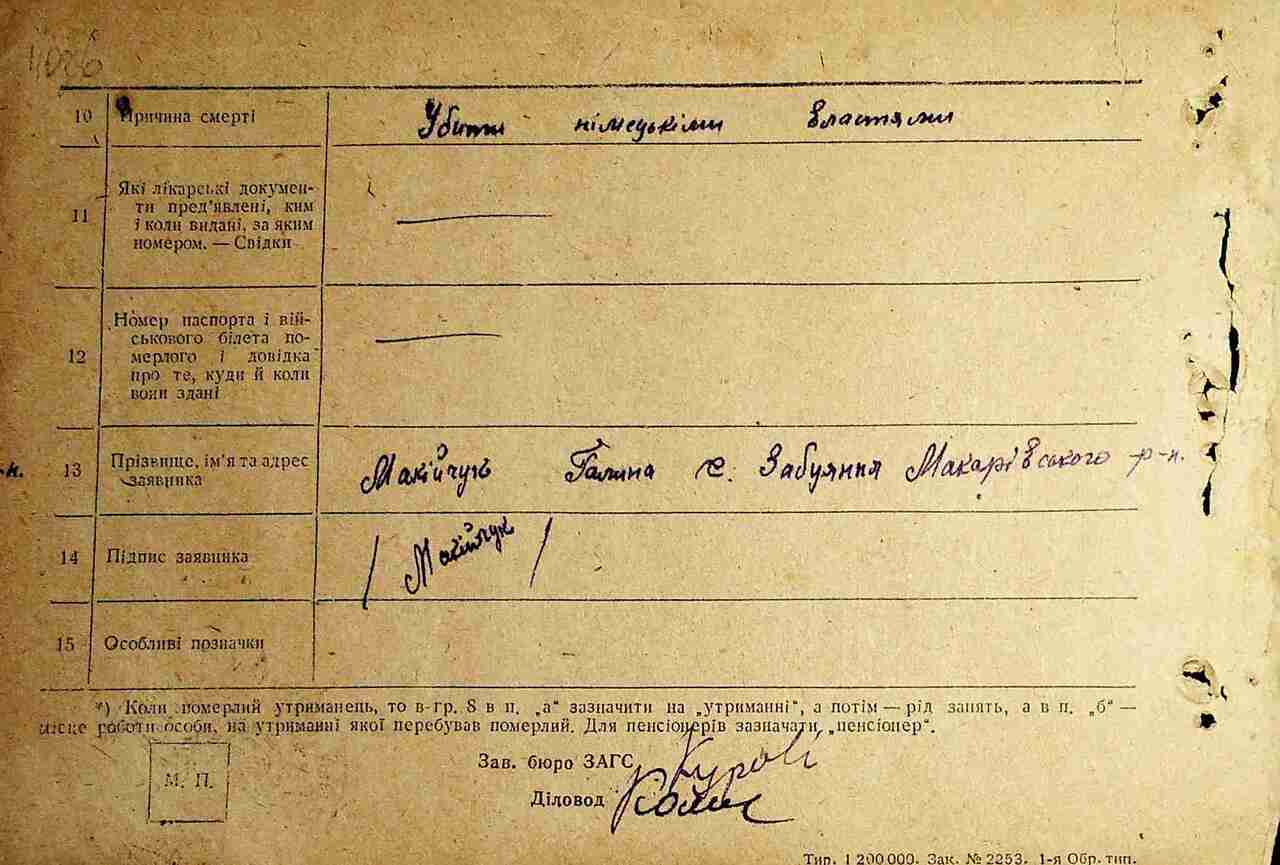 10 Причина смерті Убити німецькіми властями
11 Які лікарські докумен-
ти пред'явлені, ким
і коли видані, за яким
номером. — Свідки
12 Номер паспорта і вій-
ськового білета по-
мерлого і довідка
про те, куди й коли
вони здані
13 Прізвище, ім'я та адрес Макійчук Галина с. Забуяння Макарівського р-н.
заявника
14 Підпис заявника / Макійчук /
15 Особливі позначки
*) Коли померлий утриманець, то в гр. 8 в п. „а“ зазначити на „утриманні“, а потім — рід занять, а в п. „б“ —
місце роботи особи, на утриманні якої перебував померлий. Для пенсіонерів зазначати „пенсіонер“.
Зав. бюро ЗАГС
М. П.
Діловод
Тип. 1 200 000. Зак. № 2253. 1-я Обр. тип.